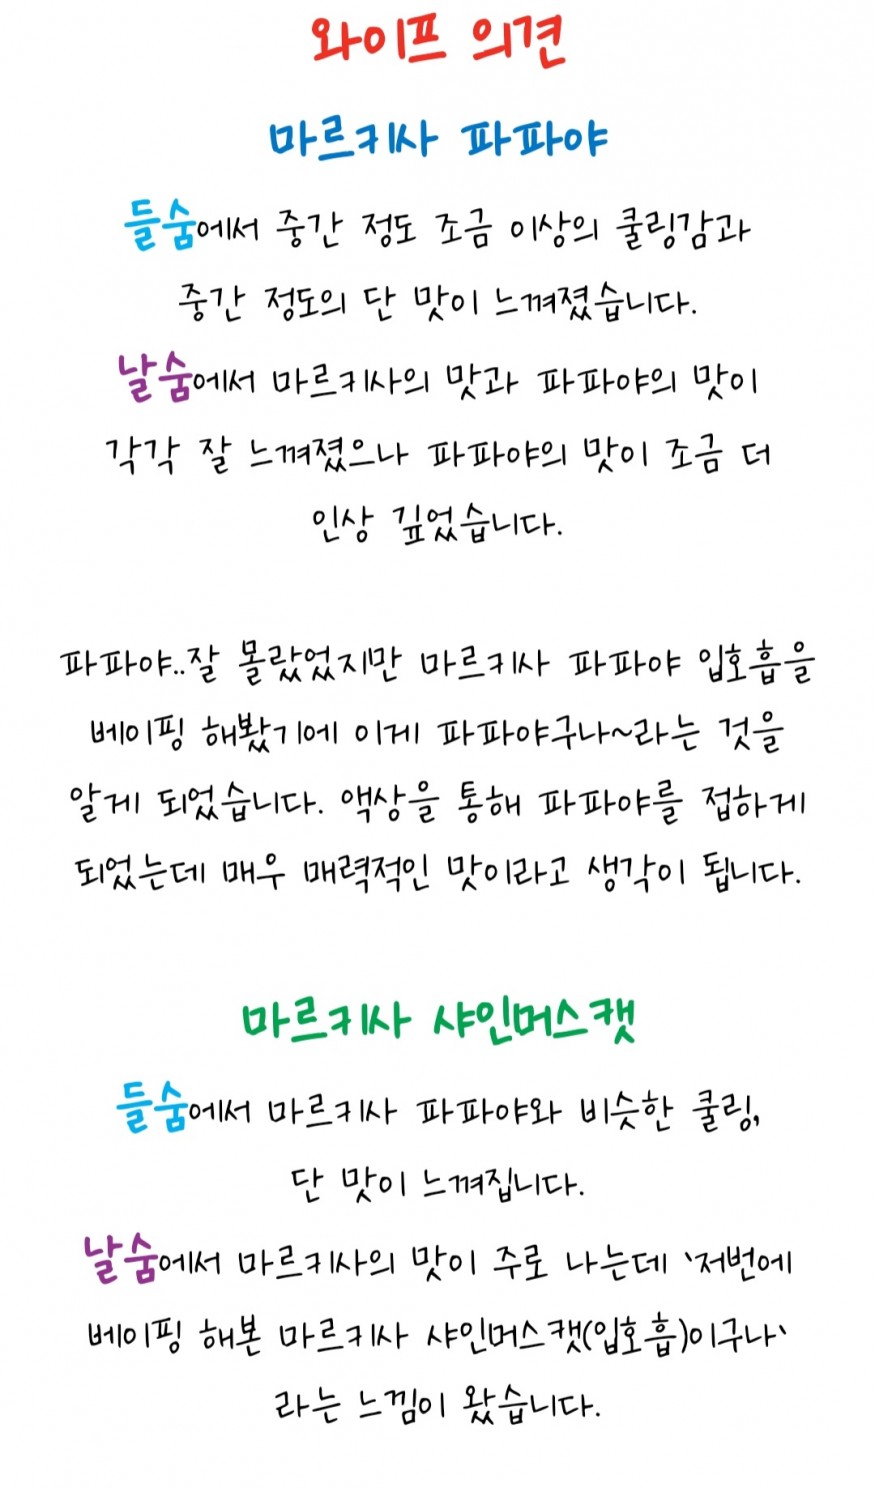 와이프 의견
마르키사 파파야
들숨에서 중간 정도 조금 이상의 쿨링감과
중간 정도의 단 맛이 느껴졌습니다.
날숨에서 마르키사의 맛과 파파야의 맛이
각각 잘 느껴졌으나 파파야의 맛이 조금 더
인상 깊었습니다.
파파야..잘 몰랐었지만 마르키사 파파야 입호흡을
베이핑 해봤기에 이게 파파야구나~라는 것을
알게 되었습니다. 액상을 통해 파파야를 접하게
되었는데 매우 매력적인 맛이라고 생각이 됩니다.
마르키사 샤인머스캣
들숨에서 마르키사 파파야와 비슷한 쿨링,
단 맛이 느껴집니다.
날숨에서 마르키사의 맛이 주로 나는데 '저번에
베이핑 해본 마르키사 샤인머스캣(입호흡)이구나'
라는 느낌이 왔습니다.